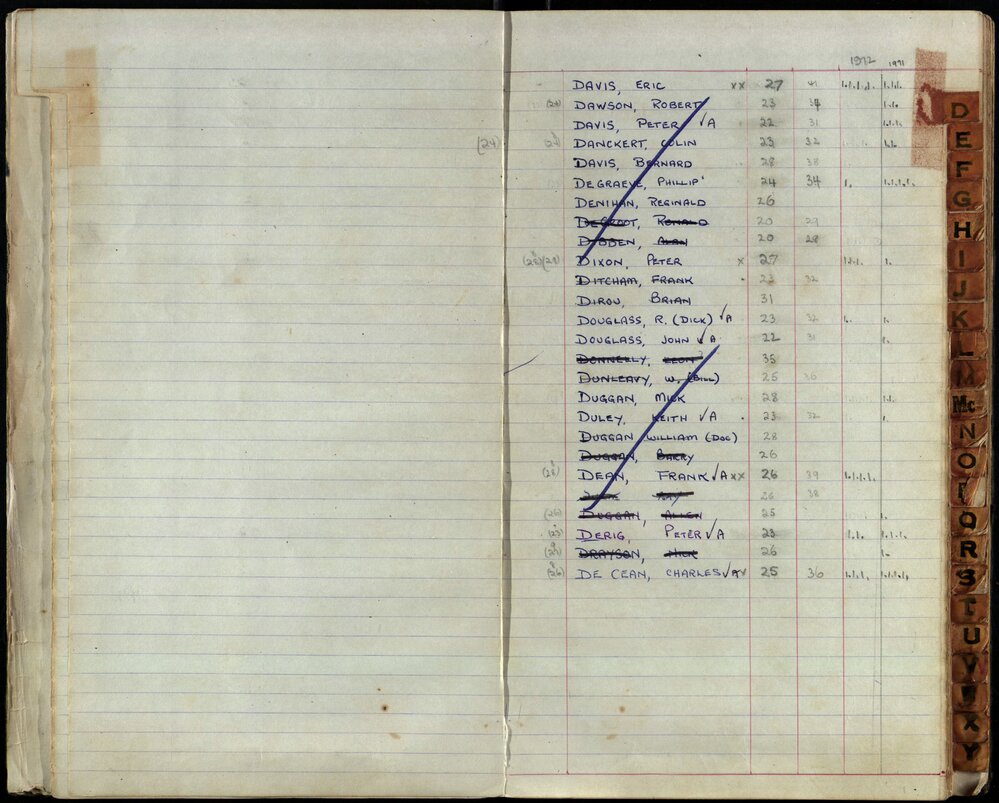 1972 1971
DAVIS, ERIC xx 27 41 1.1.1.1. 1.1.1.
(24) DAWSON, ROBERT 23 34 1.1.
DAVIS, PETER √A 22 31 1.1.1.
(24) DANCKERT, COLIN 23 32 1.1.
DAVIS, BERNARD 28 38
DEGRAEVE, PHILLIP 24 34 1. 1.1.1.1.
DENIHAN, REGINALD 26
DEGROOT, RONALD 20 29
DODDEN, ALAN 20 28
(28)(29) DIXON, PETER x 27 1.1.1. 1.
DITCHAM, FRANK . 23 32
DIROU, BRIAN 31
DOUGLASS, R. (DICK) √A 23 32 1. 1.
DOUGLASS, JOHN √A 22 31 1.
DONNELLY, LEON 35
DUNLEAVY, W. (BILL) 25 36
DUGGAN, MICK 28 1.1.
DULEY, KEITH √A . 23 32 1.
DUGGAN WILLIAM (DOC) 28
DUGGAN, BARRY 26
(28) DEAN, FRANK √A xx 26 39 1.1.1.1.
RAY 26 38
(26) DUGGAN, ALLEN 25 1.
(25) DERIG, PETER √A 23 1.1. 1.1.1.
(25) DRAYSON, MICK 26 1.
(26) DE CEAN, CHARLES √A x 25 36 1.1.1. 1.1.1.1.
D
E
F
G
H
I
J
K
L
M
Mc
N
O
P
Q
R
S
T
U
V
W
X
Y